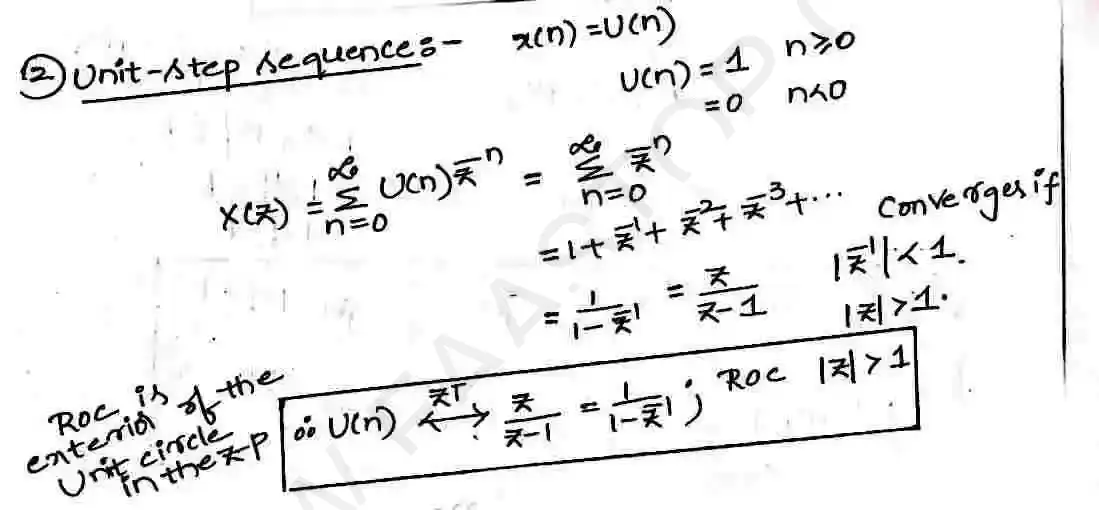 ② Unit-step sequence:- x(n) = U(n)
U(n) = 1 n≥0
= 0 n<0
X(z) = ∞Σn=0 U(n) z⁻ⁿ = ∞Σn=0 z⁻ⁿ
= 1 + z⁻¹ + z⁻² + z⁻³ + ... Converges if
= 1/(1 - z⁻¹) = z/(z-1) |z⁻¹| < 1.
|z| > 1.
ROC is
exterior of the
Unit circle
in the z-p
∴ U(n) ←ZT→ z/(z-1) = 1/(1-z⁻¹) ; ROC |z| > 1